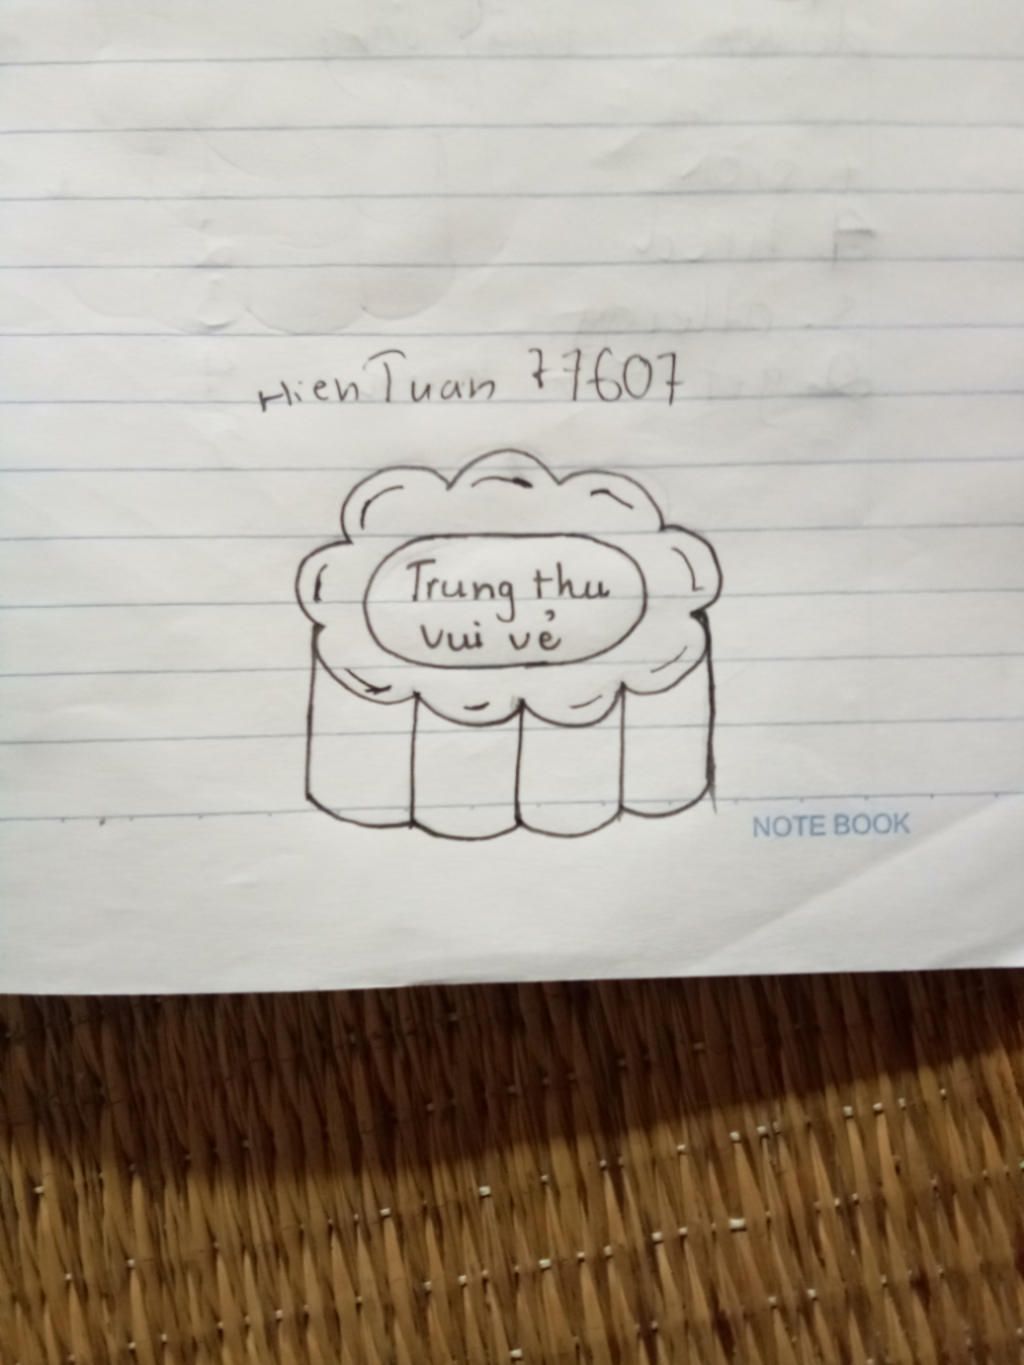 Hien Tuan 77607
Trung thu
vui vẻ
NOTE BOOK